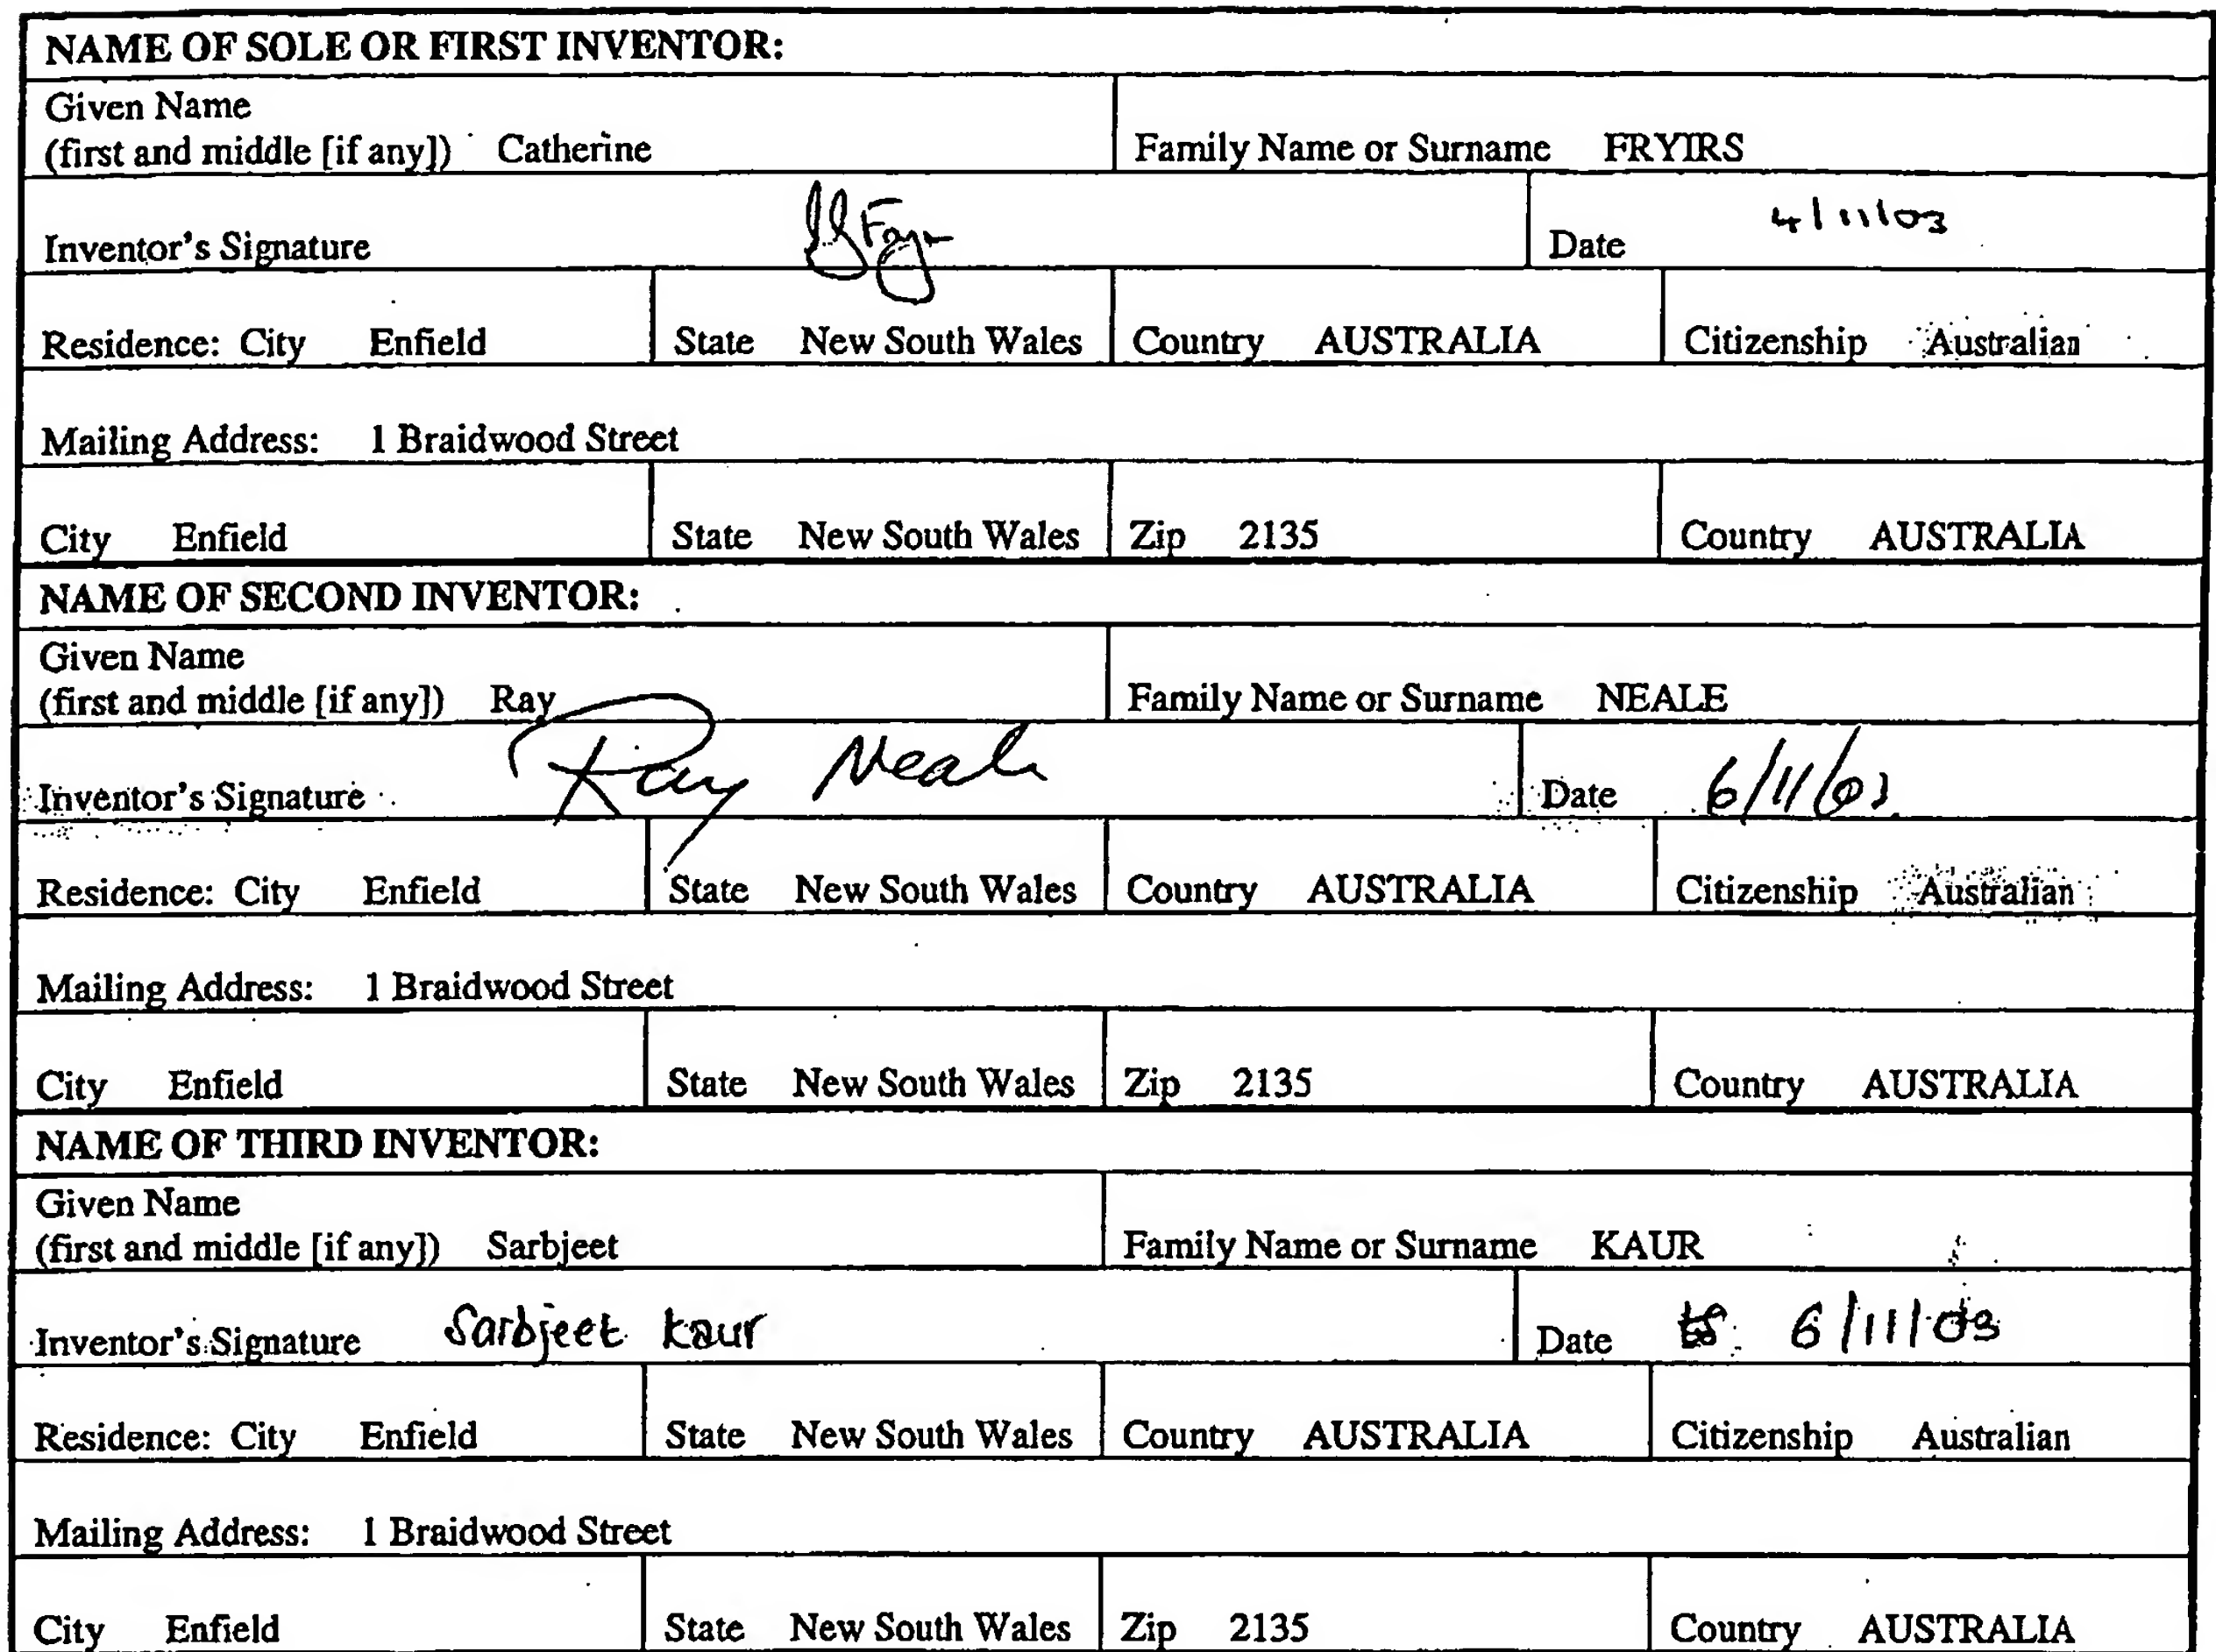 NAME OF SOLE OR FIRST INVENTOR:
Given Name
(first and middle [if any]) Catherine Family Name or Surname FRYIRS
Inventor's Signature Date 4/11/03
Residence: City Enfield State New South Wales Country AUSTRALIA Citizenship Australian
Mailing Address: 1 Braidwood Street
City Enfield State New South Wales Zip 2135 Country AUSTRALIA
NAME OF SECOND INVENTOR:
Given Name
(first and middle [if any]) Ray Family Name or Surname NEALE
Inventor's Signature Ray Neale Date 6/11/03
Residence: City Enfield State New South Wales Country AUSTRALIA Citizenship Australian
Mailing Address: 1 Braidwood Street
City Enfield State New South Wales Zip 2135 Country AUSTRALIA
NAME OF THIRD INVENTOR:
Given Name
(first and middle [if any]) Sarbjeet Family Name or Surname KAUR
Inventor's Signature Sarbjeet Kaur Date 6/11/03
Residence: City Enfield State New South Wales Country AUSTRALIA Citizenship Australian
Mailing Address: 1 Braidwood Street
City Enfield State New South Wales Zip 2135 Country AUSTRALIA